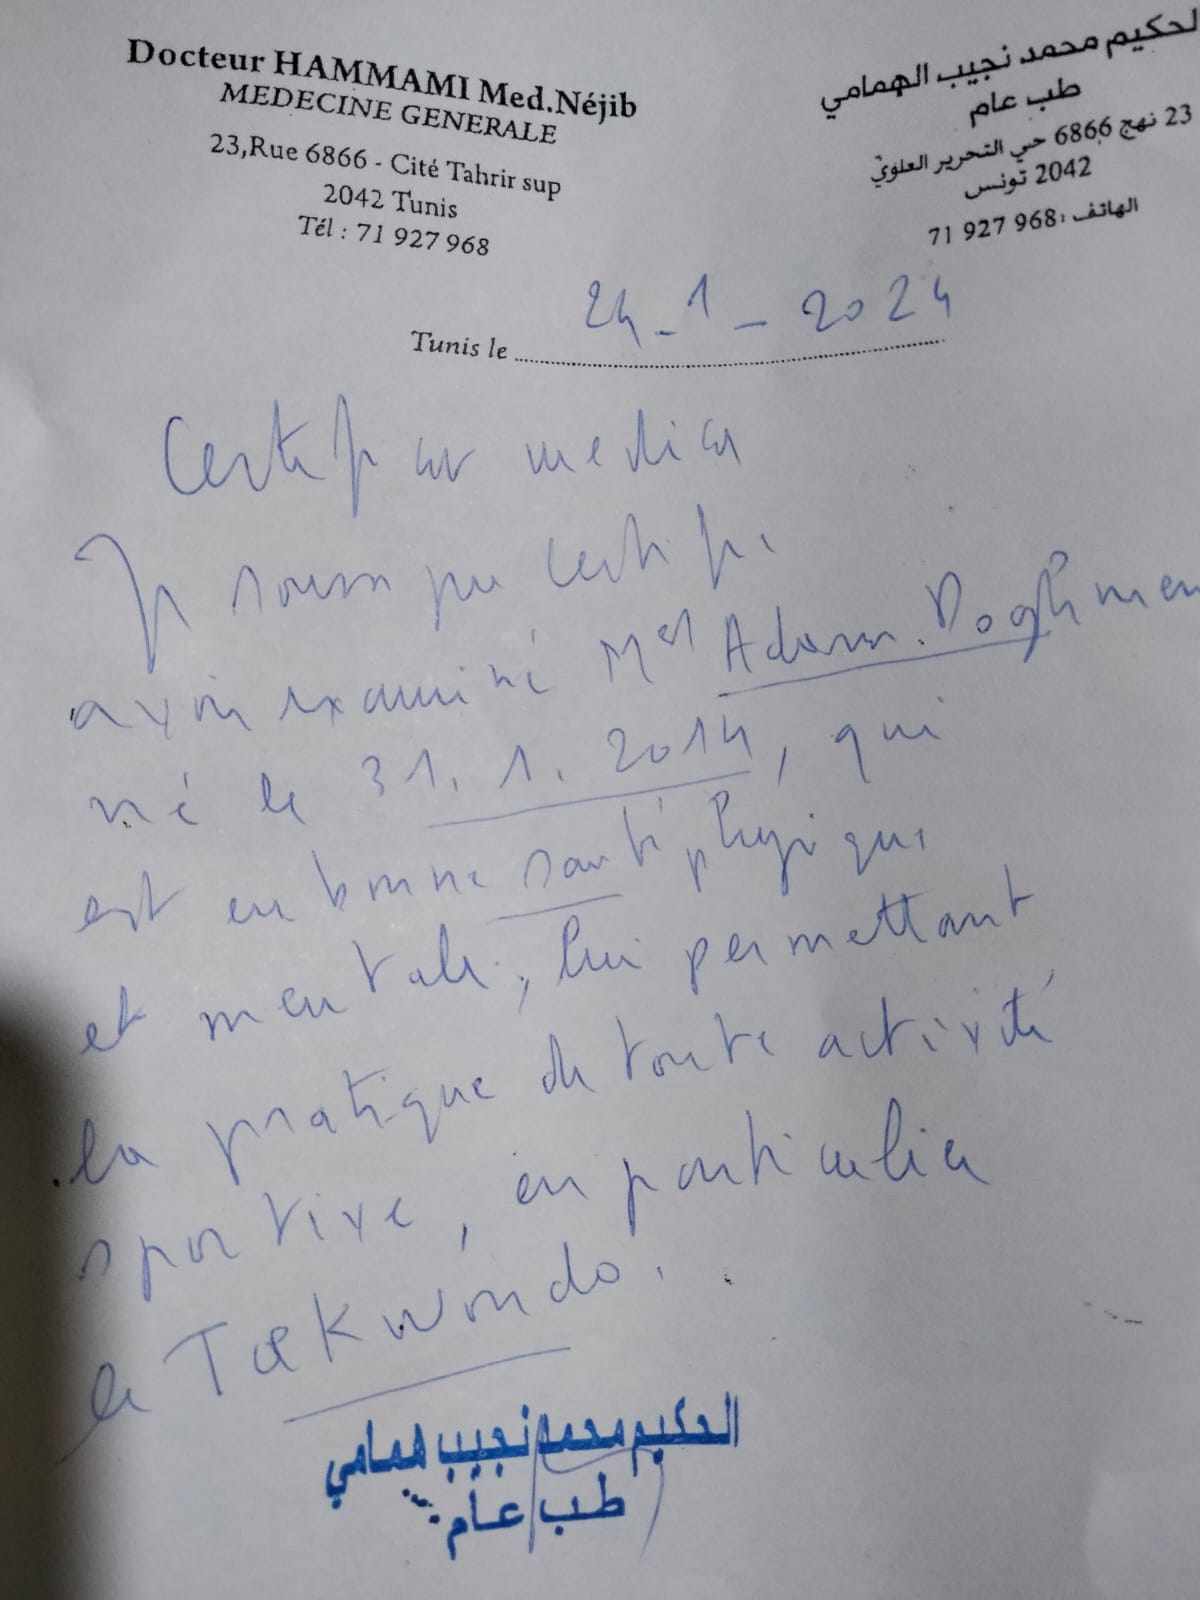 Docteur HAMMAMI Med.Néjib
MEDECINE GENERALE
23,Rue 6866 - Cité Tahrir sup
2042 Tunis
Tél : 71 927 968
الحكيم محمد نجيب الهمامي
طب عام
23 نهج 6866 حي التحرير العلوي
2042 تونس
الهاتف : 71 927 968
Tunis le 24-1-2024
Certificat medical
Je soussigné certifie
avoir examiné Adam Doghmen
né le 31.1.2014, qui
est en bonne santé physique
et mentale, lui permettant
la pratique de toute activité
sportive, en particulier
le Taekwondo.
الحكيم محمد نجيب همامي
طب عام